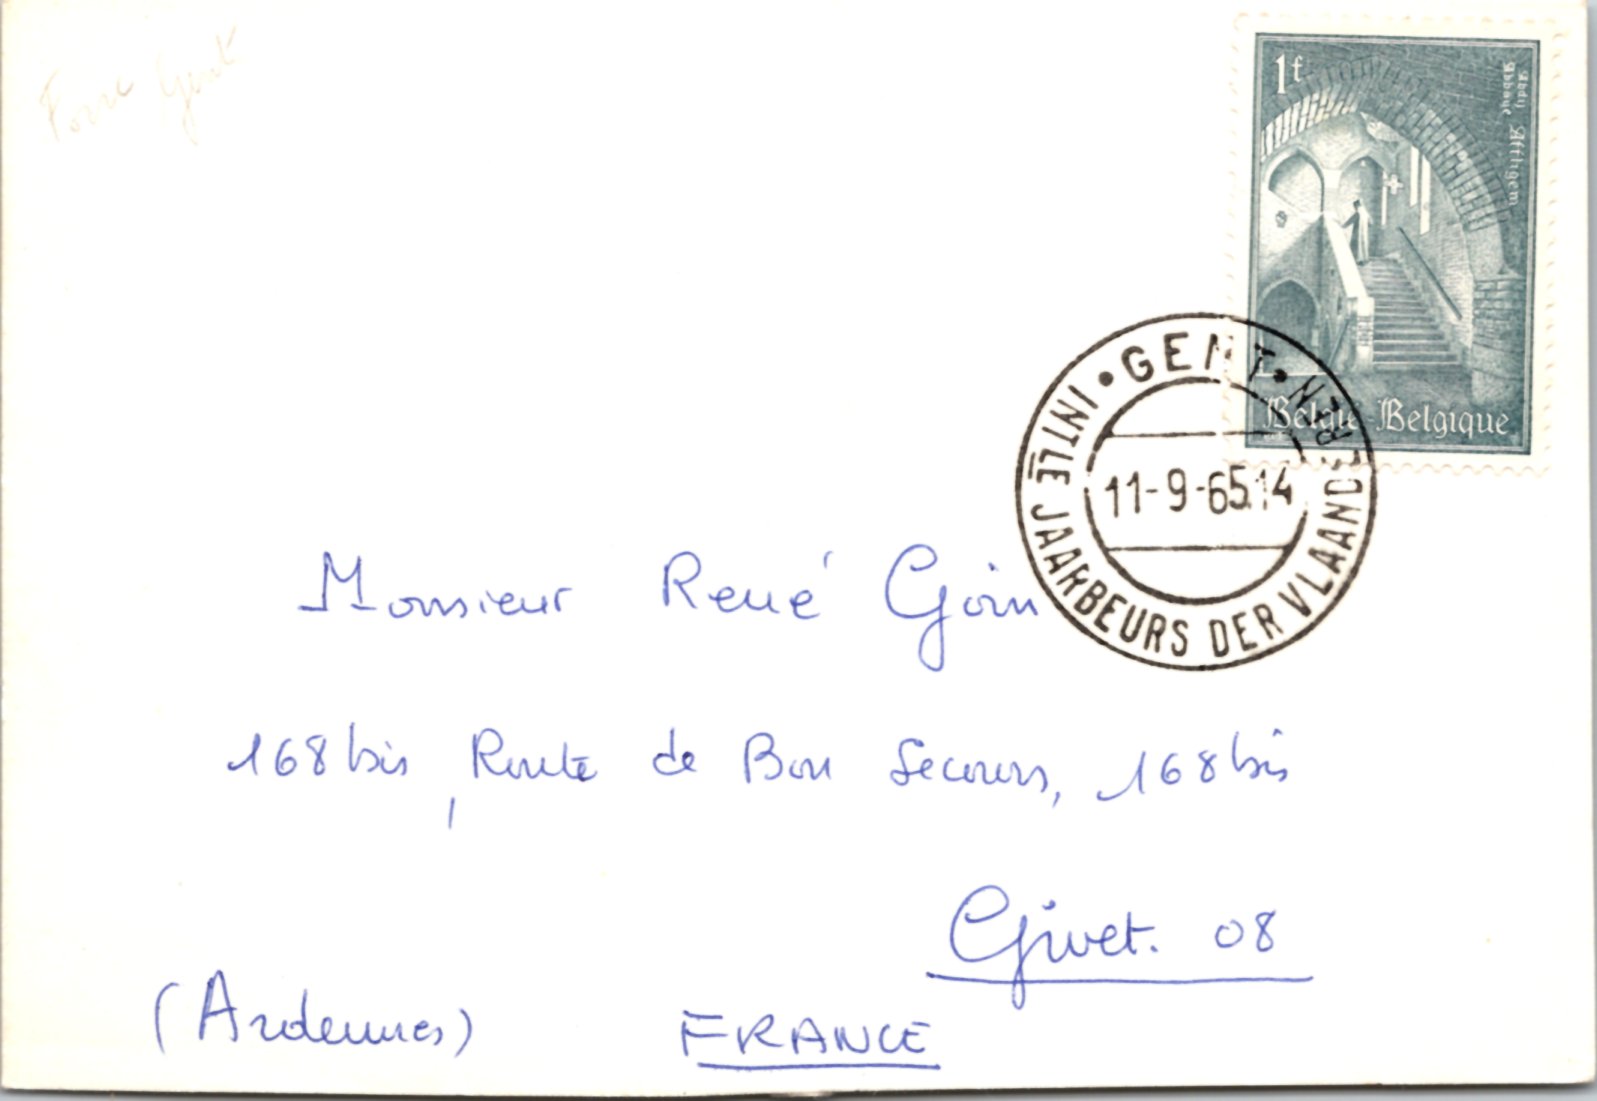 Foire Gent
1f
Abdij
Abbaye Affligem
België-Belgique
• GENT • INTLE JAARBEURS DER VLAANDEREN
11-9-65.14
Monsieur René Goin
168 bis, Route de Bon Secours, 168 bis
Givet. 08
(Ardennes) FRANCE